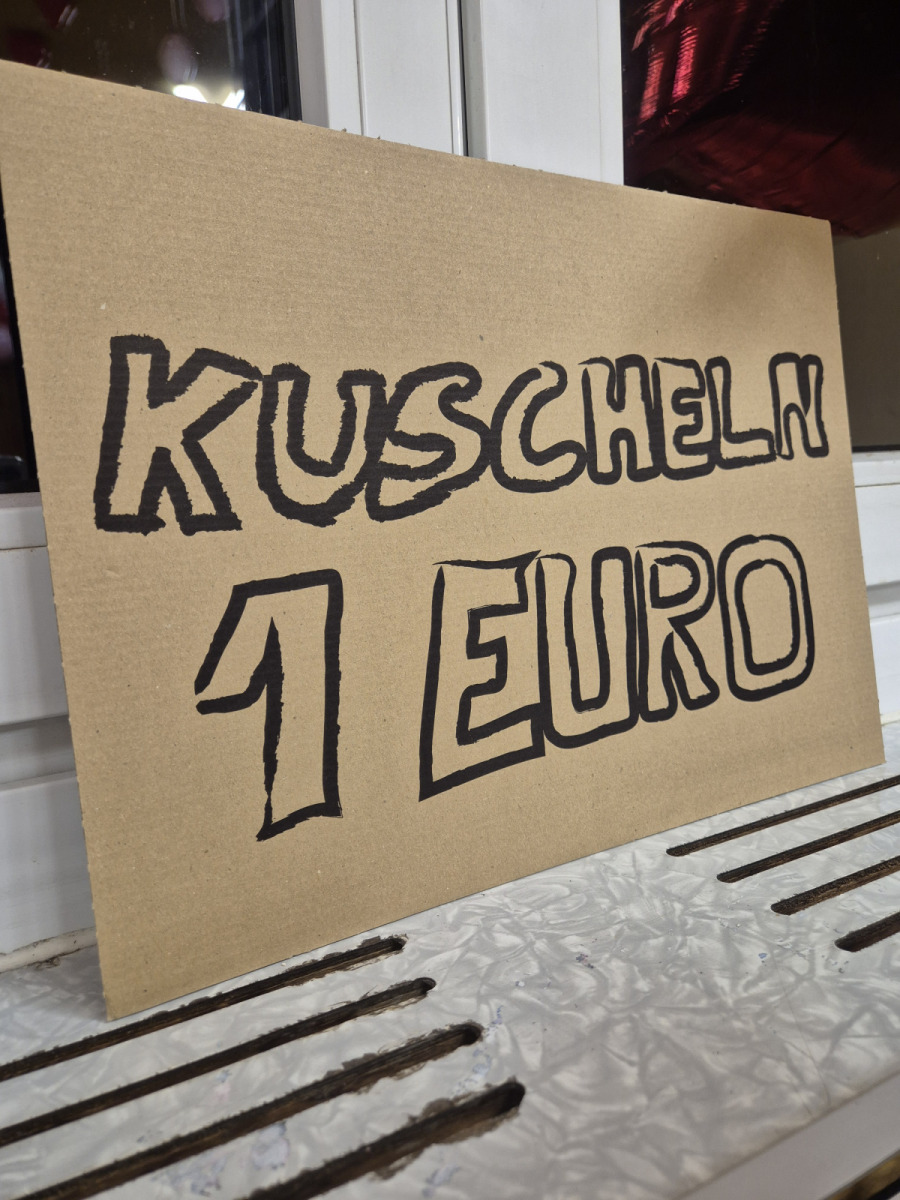 KUSCHELN
1 EURO